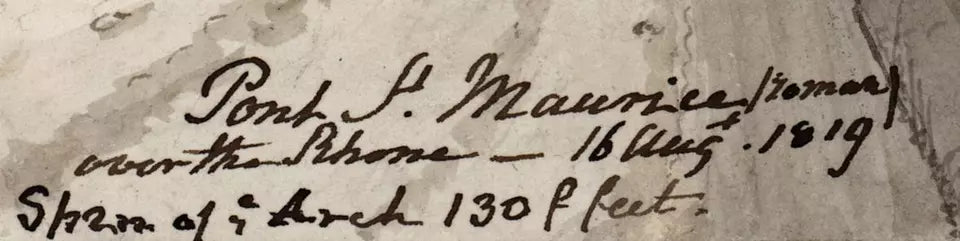 Pont St. Maurice /Roman/
over the Rhone — 16 Augt. 1819
Span of ye Arch 130 f feet.